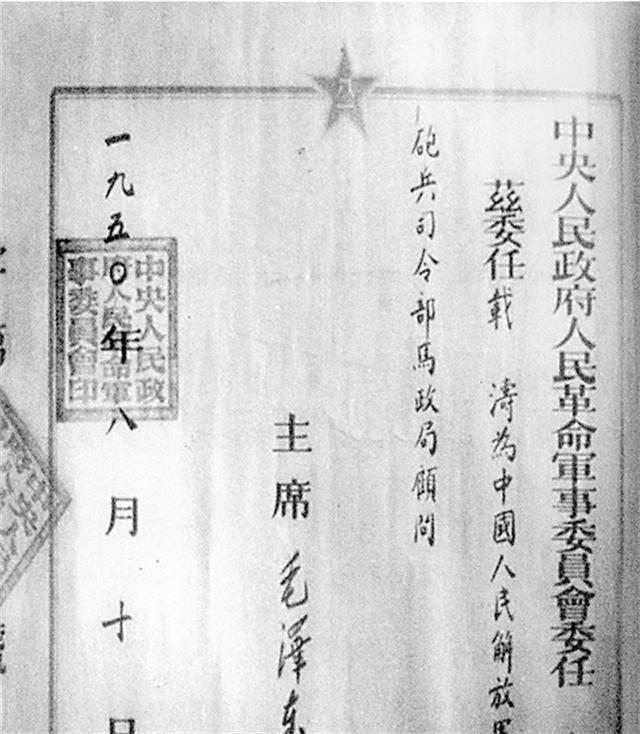 八一
中央人民政府人民革命軍事委員會委任
茲委任載 濤為中國人民解放軍
砲兵司令部馬政局顧問
主席 毛澤東
一九五〇年八月十日
中央人民政
府人民革命軍
事委員會印